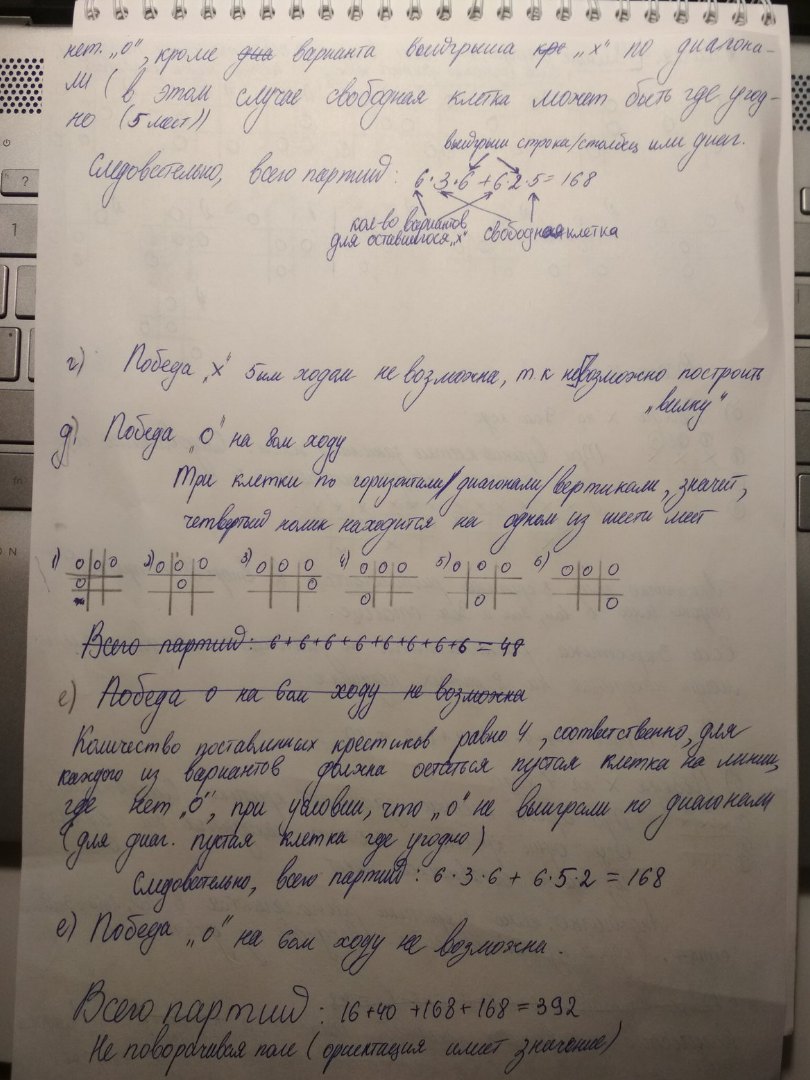 нет „0", кроме два варианта выигрыша кре „х" по диагона-
ли (в этом случае свободная клетка может быть где угод-
но (5 мест))
выигрыш строка/столбец или диаг.
Следовательно, всего партий: 6·3·6 + 6·2·5 = 168
кол-во вариантов
для оставшегося „х"
свободная клетка
г) Победа „х" 5ым ходом не возможна, т к невозможно построить
„вилку"
д) Победа „0" на 8ом ходу
Три клетки по горизонтали/диагонали/вертикали, значит,
четвертый нолик находится на одном из шести мест
1) 0 0 0 2) 0 0 0 3) 0 0 0 4) 0 0 0 5) 0 0 0 6) 0 0 0
0 0 0
0 0 0
Всего партий: 6+6+6+6+6+6+6+6 = 48
е) Победа 0 на 6ом ходу не возможна
Количество поставленных крестиков равно 4, соответственно, для
каждого из вариантов должна остаться пустая клетка на линии,
где нет „0", при условии, что „0" не выиграли по диагонали
(для диаг. пустая клетка где угодно)
Следовательно, всего партий: 6·3·6 + 6·5·2 = 168
е) Победа „0" на 6ом ходу не возможна.
Всего партий: 16+40 +168+168 = 392
Не поворачивая поле (ориентация имеет значение)